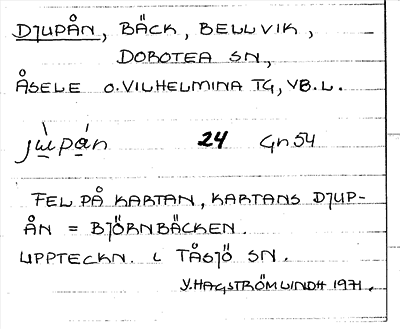 DJUPÅN, BÄCK, BELLVIK,
DOROTEA SN,
ÅSELE O. VILHELMINA TG, VB.L.
jùpán 24 Gn 54
FEL PÅ KARTAN, KARTANS DJUP-
ÅN = BJÖRNBÄCKEN.
UPPTECKN. I TÅSJÖ SN.
Y. HAGSTRÖM LINDH 1971.